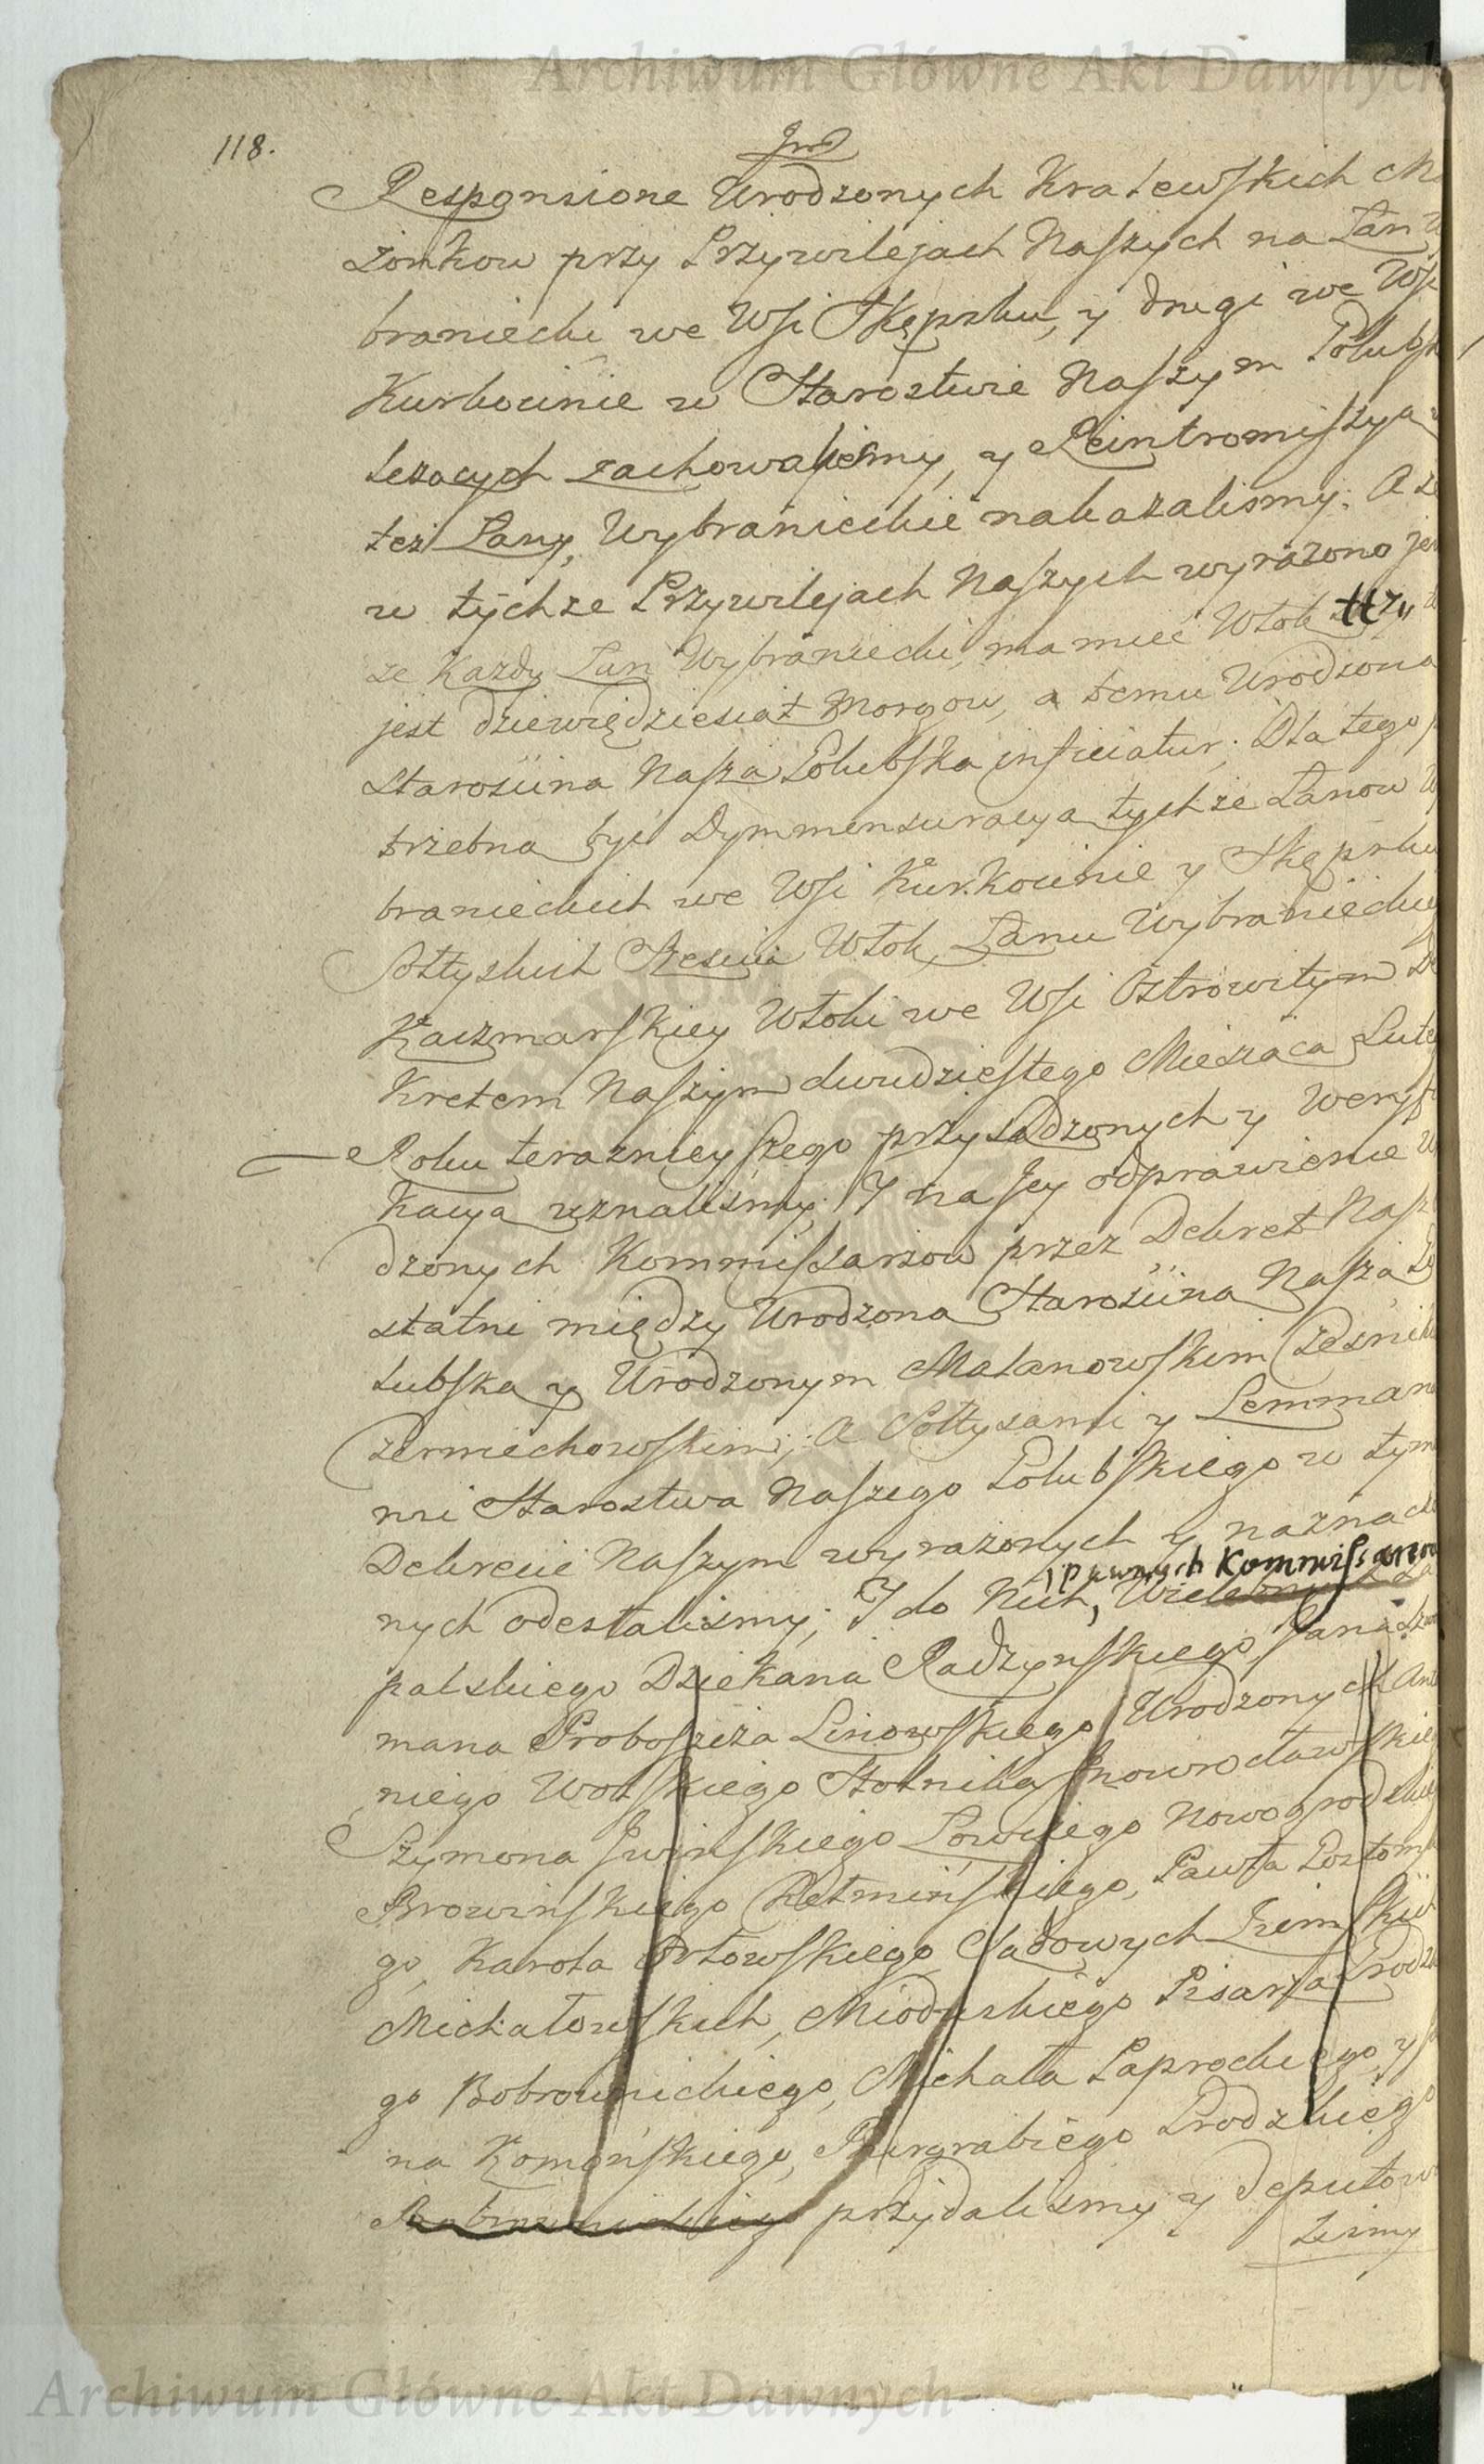 Archiwum Główne Akt Dawnych
118.
Jmd
Responsione Urodzonych Kralewskich Ma
żonkow przy Przywilejach Naszych na Łan
braniecki we Wsi Skępsku, y drugi we Wsi
Kurkocinie w Starostwie Naszym Golubs
leżacych zachowalismy, y Reintromissyą
też Łany, Wybranieckie nakazalismy. A że
w tychże Przywilejach Naszych wyrażono je
że Każdy Łan Wybraniecki, ma mieć Włok
jest dziewiędziesiąt Morgow, a temu Urodzona
Starościna Nasza Golubska inficiatur; Dla tego
trzebną być Dymmensuracyą tychże Łanow
branieckich we Wsi Kurkocinie y Skępsku
Sołtyskich Sześciu Włok, Łanu Wybranieckie
Kaczmarskiey Włoki we Wsi Ostrowitym De
Kretem Naszym dwudziestego Miesiąca Lute
Roku teraznieyszego przysądzonych y Weryfi
Kacyą uznalismy; I na Jey odprawienie
dzonych Kommissarzow przez Dekret Nasz
statni między Urodzoną Starościną Naszą
lubską y Urodzonym Matanowskim Czesnik
Zermiechowskim; A Sołtysami y Lemman
mi Starostwa Naszego Golubskiego w tym
Dekrecie Naszym wyrażonych y naznaczo
pewnych Kommissarzow
nych odesłalismy; I do Nich,
palskiego Dziekana Radzynskiego, Jana
mana Proboszcza Linowskiego, Urodzonych
niego Wolskiego Stolnika Inowrocławskieg
Szymona Jwinskiego Łowczego Nowogrodzkieg
Browinskiego Chełminskiego, Pawła
go, Karola Orłowskiego Sądowych Ziemskich
Michałowskich, Mioduskiego Pisarza Grodz
go Bobrownickiego, Michała Paprockiego, y
na Komorskiego, Burgrabiego Grodzkiego
Bobrownickiego przydalismy y deputow
lismy
Archiwum Główne Akt Dawnych